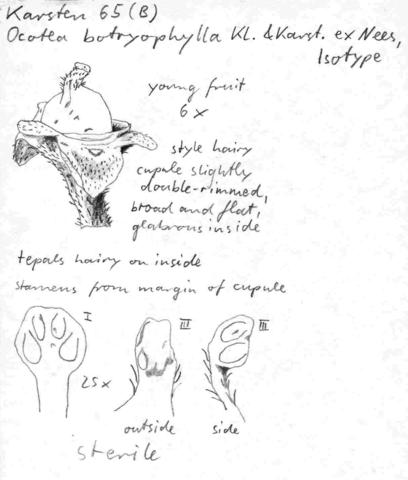 Karsten 65 (B)
Ocotea botryophylla Kl. & Karst. ex Nees,
Isotype
young fruit
6 x
style hairy
cupule slightly
double-rimmed,
broad and flat,
glabrous inside
tepals hairy on inside
stamens from margin of cupule
I
III
III
25 x
outside
side
sterile